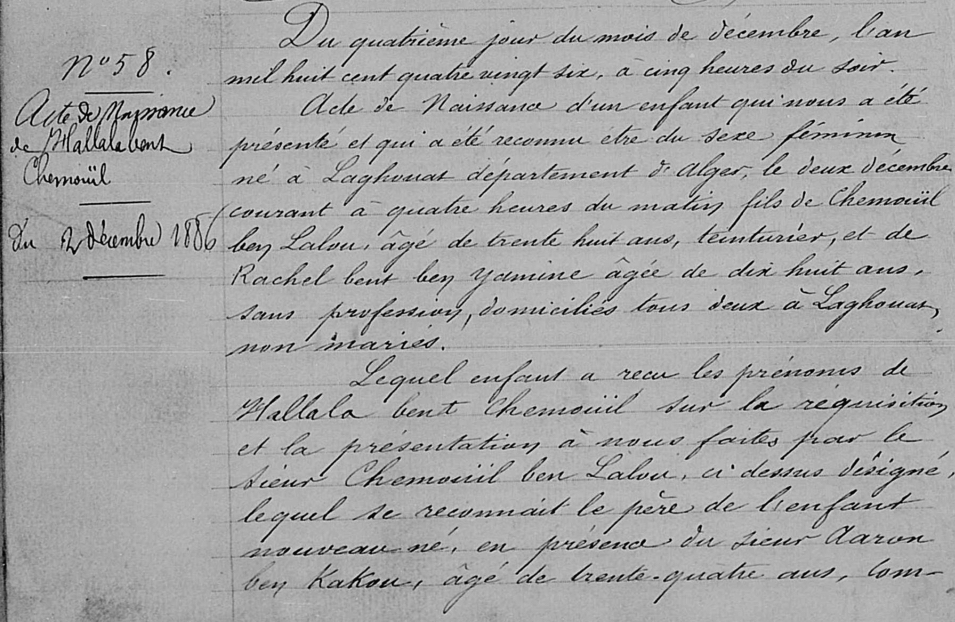 N° 58.
Acte de Naissance
de Hallala bent
Chemouïl
du 2 décembre 1886
Du quatrième jour du mois de décembre, l'an
mil huit cent quatre vingt six, à cinq heures du soir.
Acte de Naissance d'un enfant qui nous a été
présenté et qui a été reconnu être du sexe féminin
né à Laghouat département d'Alger, le deux décembre
courant à quatre heures du matin fils de Chemouïl
ben Lalou, âgé de trente huit ans, teinturier, et de
Rachel bent ben Yamine âgée de dix huit ans,
sans profession, domiciliés tous deux à Laghouat,
non mariés.
Lequel enfant a recu les prénoms de
Hallala bent Chemouïl sur la réquisition
et la présentation à nous faites par le
sieur Chemouïl ben Lalou, ci dessus désigné,
lequel se reconnait le père de l'enfant
nouveau né, en présence du sieur Aaron
ben Kakou, âgé de trente-quatre ans, com-